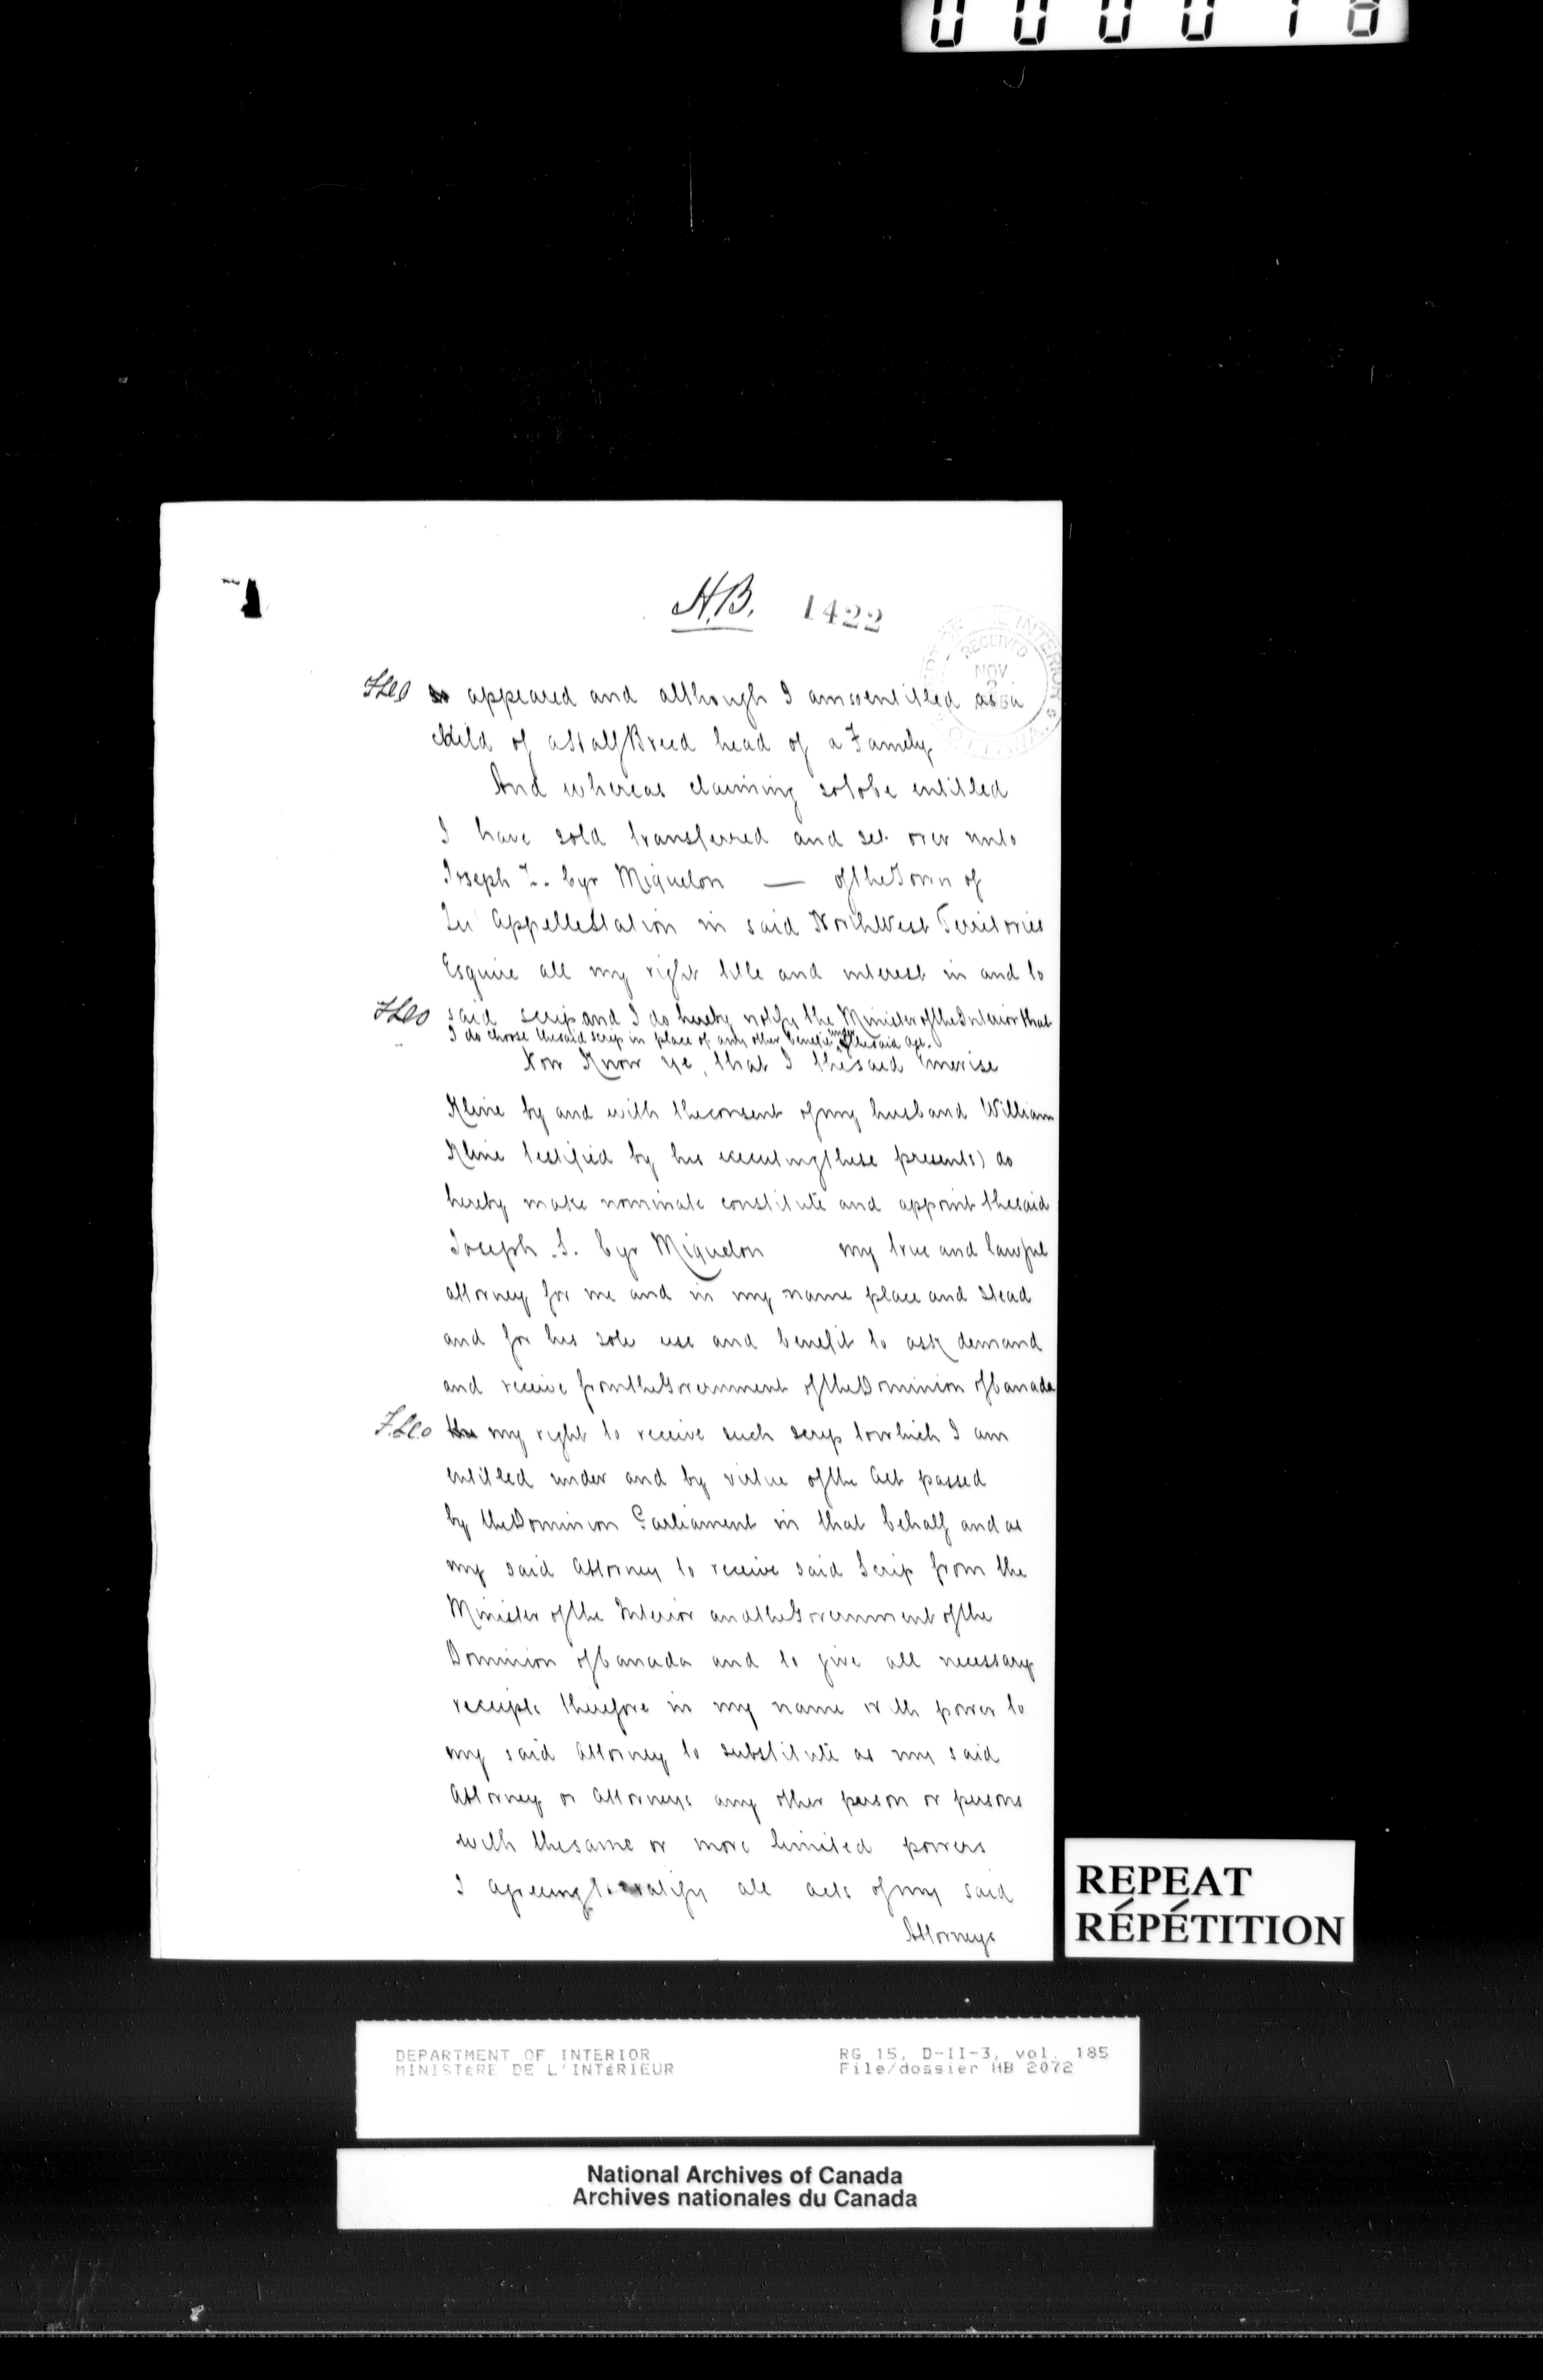 000018
H.B. 1422
DEPT OF THE INTERIOR
RECEIVED
NOV
2
OTTAWA
so appeared and although I am so entitled as a
child of a Half Breed head of a Family
And whereas claiming so to be entitled
I have sold transferred and set over unto
Joseph Z. Cyr Miquelon — of the Town of
Qu'Appelle Station in said North West Territories
Esquire all my right title and interest in and to
said scrip and I do hereby notify the Minister of the Interior that
I do choose the said scrip in place of any other benefit under the said Act.
Now Know ye, that I the said Emerise
Kline by and with the consent of my husband William
Kline testified by his executing these presents) do
hereby make nominate constitute and appoint the said
Joseph Z. Cyr Miquelon my true and lawful
attorney for me and in my name place and stead
and for his sole use and benefit to ask demand
and receive from the Government of the Dominion of Canada
the my right to receive such scrip to which I am
entitled under and by virtue of the Act passed
by the Dominion Parliament in that behalf and as
my said Attorney to receive said Scrip from the
Minister of the Interior and the Government of the
Dominion of Canada and to give all necessary
receipts therefore in my name with power to
my said Attorney to substitute as my said
Attorney or Attorneys any other person or persons
with the same or more limited powers
I agreeing to ratify all acts of my said
Attorneys
REPEAT
RÉPÉTITION
DEPARTMENT OF INTERIOR RG 15, D-II-3, vol. 185
MINISTÈRE DE L'INTÉRIEUR File/dossier HB 2072
National Archives of Canada
Archives nationales du Canada